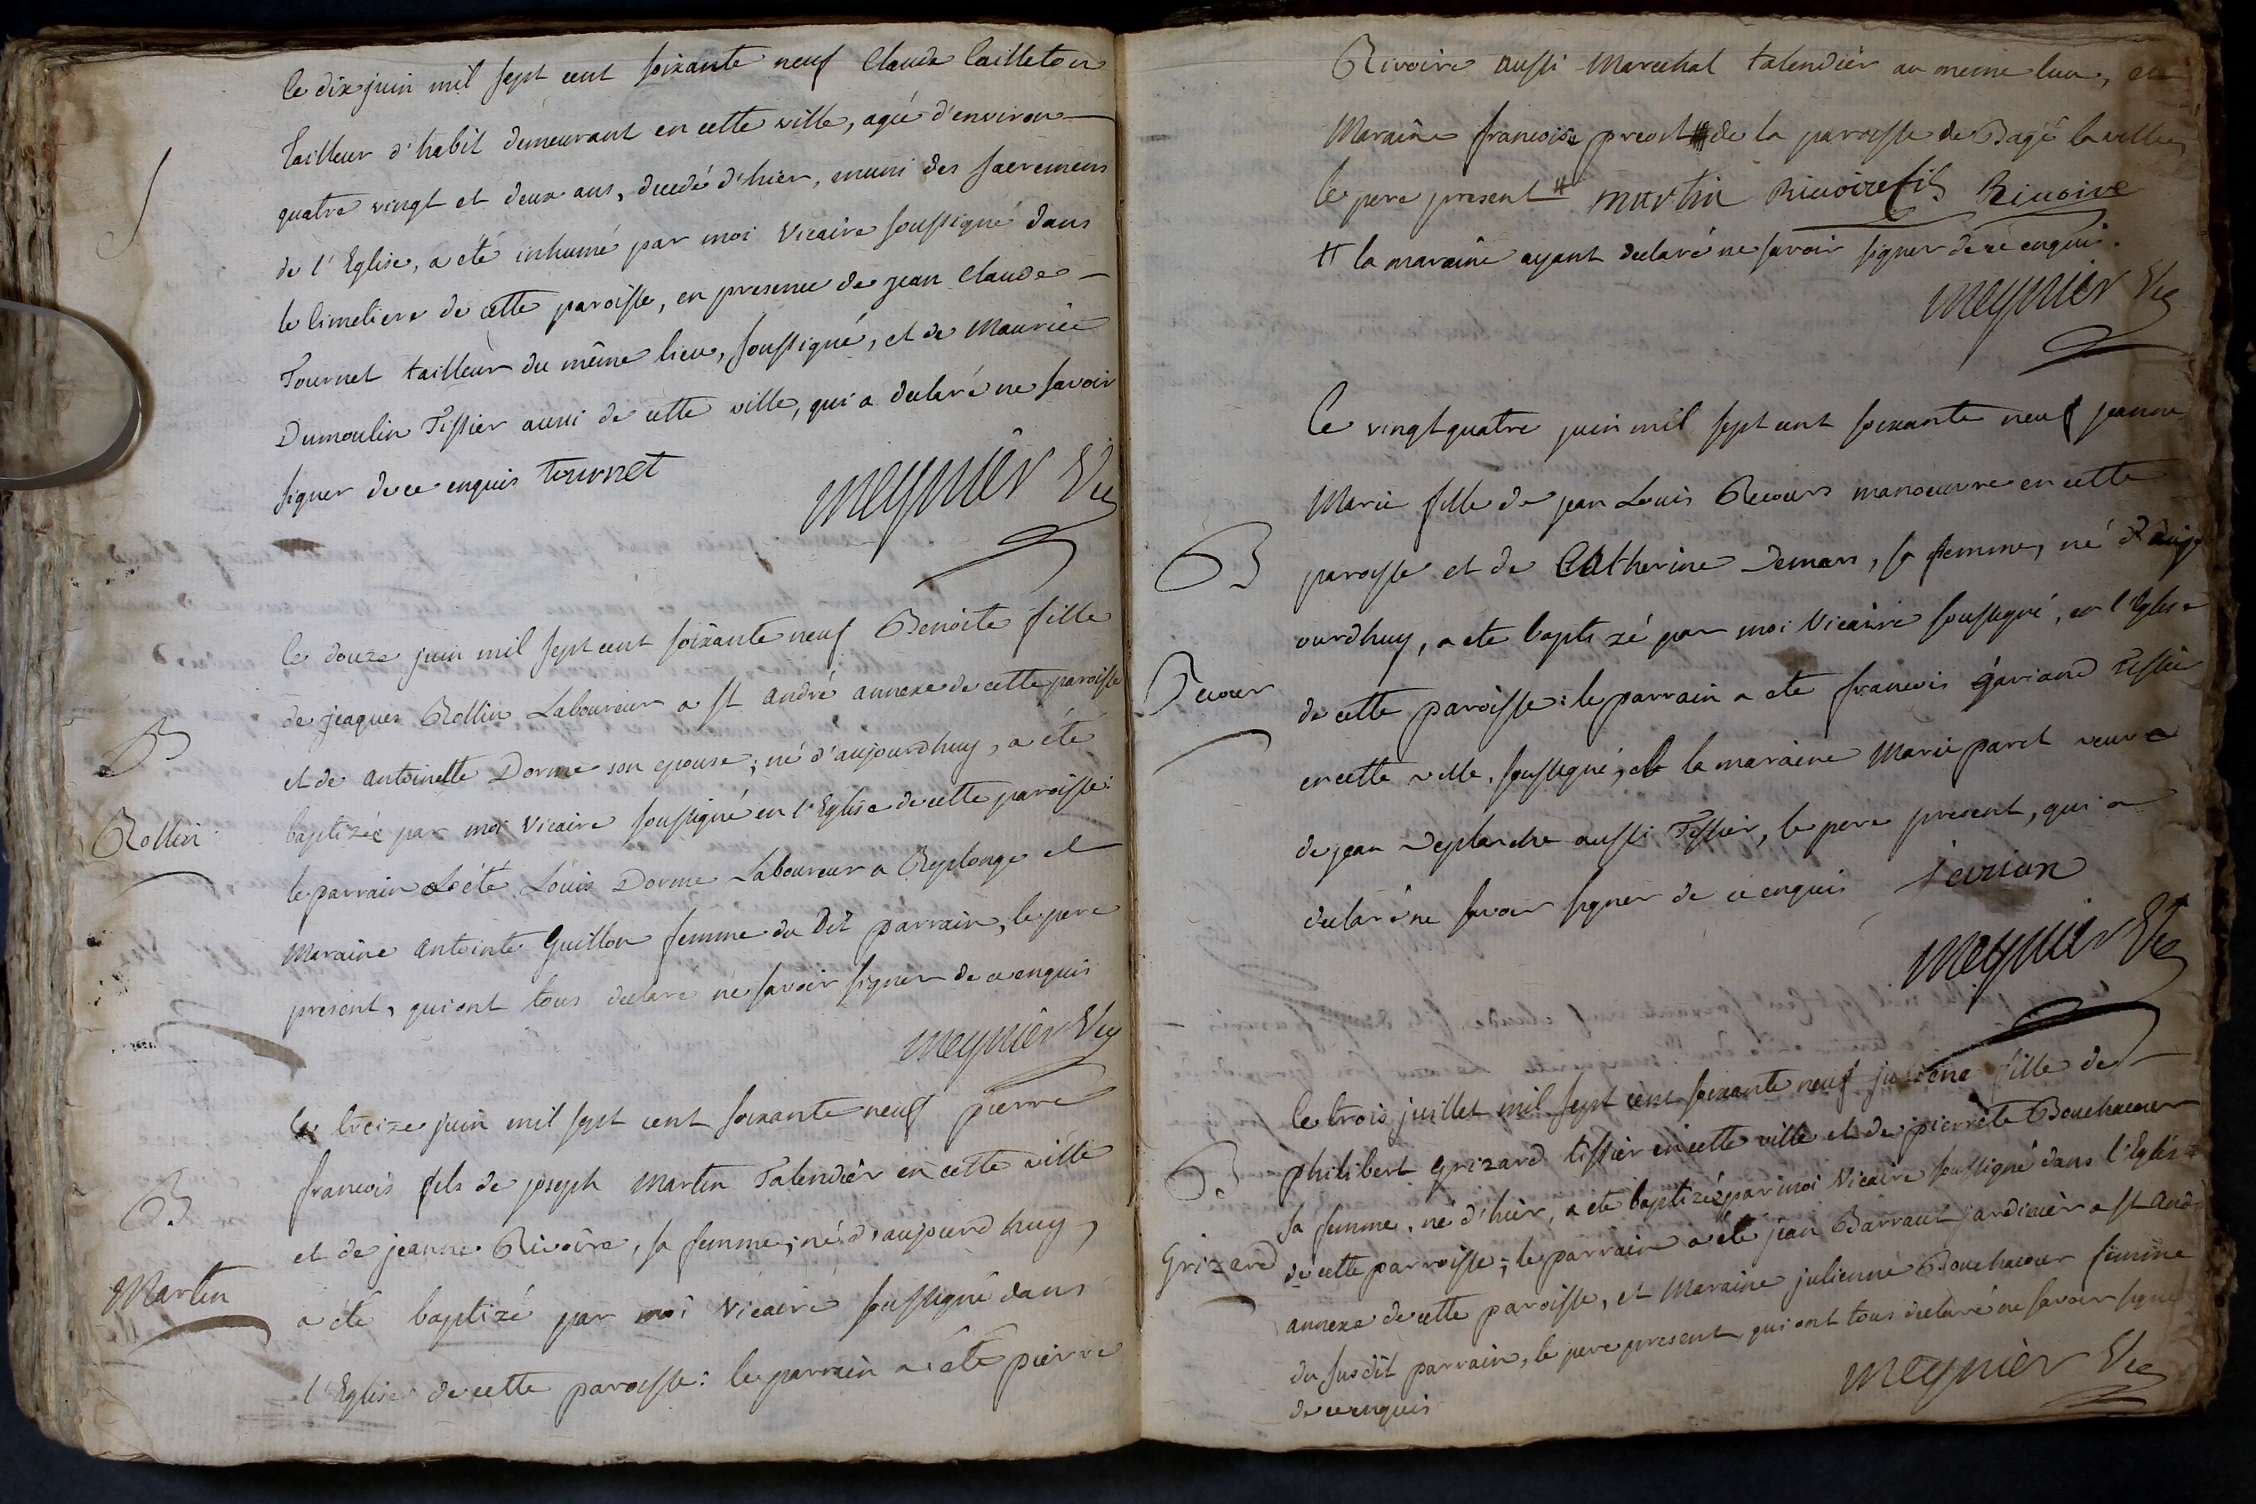 Le dix juin mil sept cent soixante neuf Claude Cailleton
Tailleur d'habit demeurant en cette ville, agé d'environ
quatre vingt et deux ans, decedé d'hier, muni des sacremens
de l'Eglise, a été inhumé par moi Vicaire soussigné dans
le Cimetiere de cette paroisse, en presence de jean Claude
Tournet tailleur du même lieu, soussigné, et de Maurice
Dumoulin Tissier aussi de cette ville, qui a declaré ne savoir
signer de ce enquis Tournet
meynier Vic
B
Rollin
le douze juin mil sept cent soixante neuf Benoite fille
de jeaques Rollin Laboureur a St andré annexe de cette paroisse
et de antoinette Dorme son epouse; né d'aujourdhuy, a été
baptizée par moi Vicaire soussigné en l'Eglise de cette paroisse:
le parrain a été Louis Dorme Laboureur a Replonge et
Maraine antointe Guillon femme du Dit parrain, le pere
present, qui ont tous declare ne savoir signer de ce enquis
meynier Vic
B
Martin
le treize juin mil sept cent soixante neuf pierre
francois fils de joseph Martin Talendier en cette ville
et de jeanne Rivoire, sa femme; né d'aujourdhuy,
a été baptizé par moi Vicaire soussigné dans
l'Eglise de cette paroisse: le parrain a été pierre
Rivoire aussi Marechal talendier au meme lieu, et
Maraine francoise de la paroisse de Bagé la ville,
le pere present # martin Rivoire fils Rivoire
# la maraine ayant declaré ne savoir signer de ce enquis.
meynier Vic
B
Recour
Le vingt quatre juin mil sept cent soixante neuf jeanne
Marie fille de jean Louis Recours manoeuvre en cette
paroisse et de Catherine Demars, sa femme, né d'auj
ourdhuy, a ete baptizé par moi Vicaire soussigné, en l'Eglise
de cette paroisse: le parrain a ete francois gariand Tissier
en cette ville, soussigné, et la maraine Marie paret veuve
de jean Deplanche aussi Tissier, le pere present, qui a
declaré ne savoir signer de ce enquis jarian
meynier Vic
B
Grizard
le trois juillet mil sept cent soixante neuf julene fille de
philibert Grizard tissier en cette ville et de pierrete Bouchacour
sa femme, né d'hier, a ete baptizée par moi Vicaire soussigné dans l'Eglise
de cette parroisse; le parrain a été jean Barraut jardinier a St André
annexe de cette paroisse, et Maraine julienne Bouchacour femme
du susdit parrain, le pere present, qui ont tous declaré ne savoir signe
de ce enquis
meynier Vic